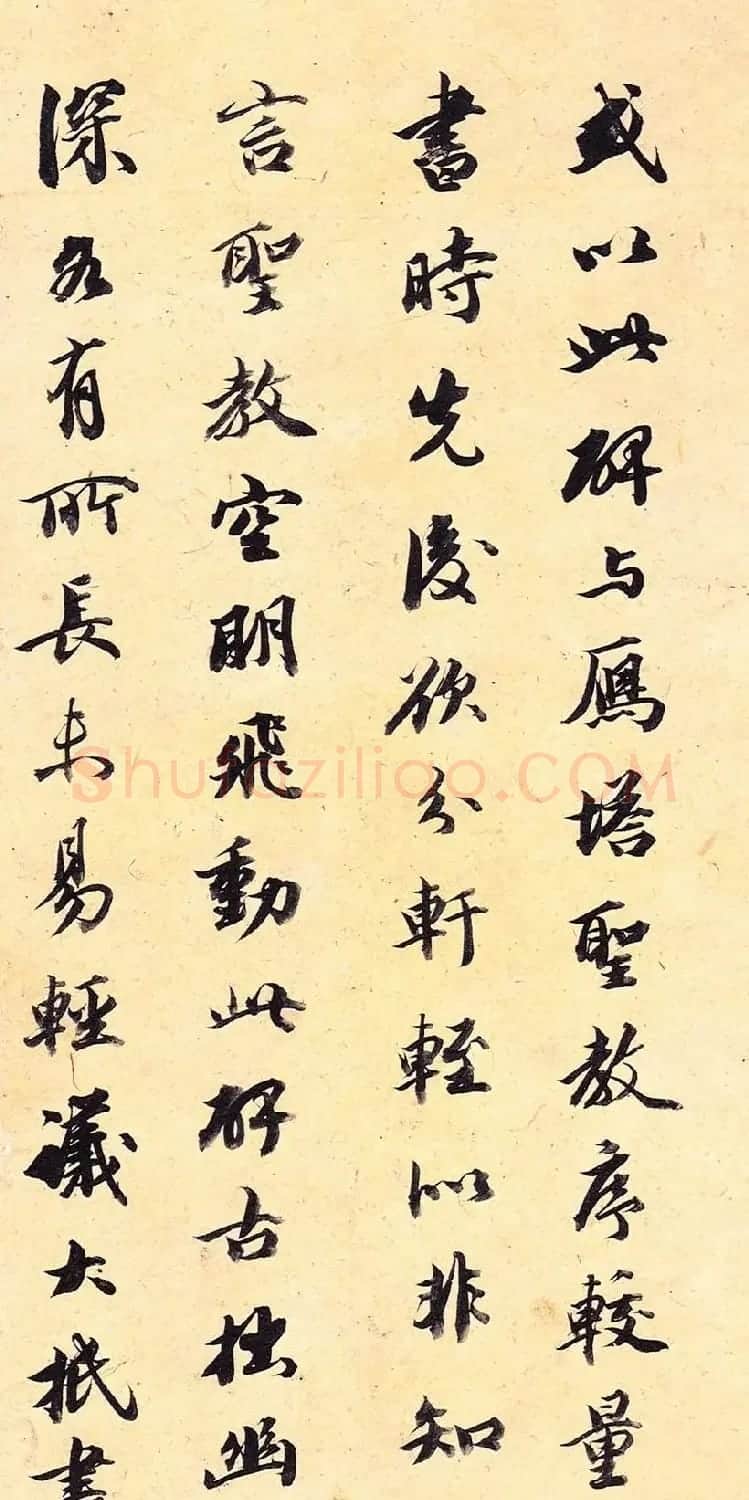 或以此碑与鴈塔聖教序較量
書時先後欲分軒輊似非知
言聖教空明飛動此碑古拙幽
深各有所長未易輕議大抵書
Shufaziliao.COM